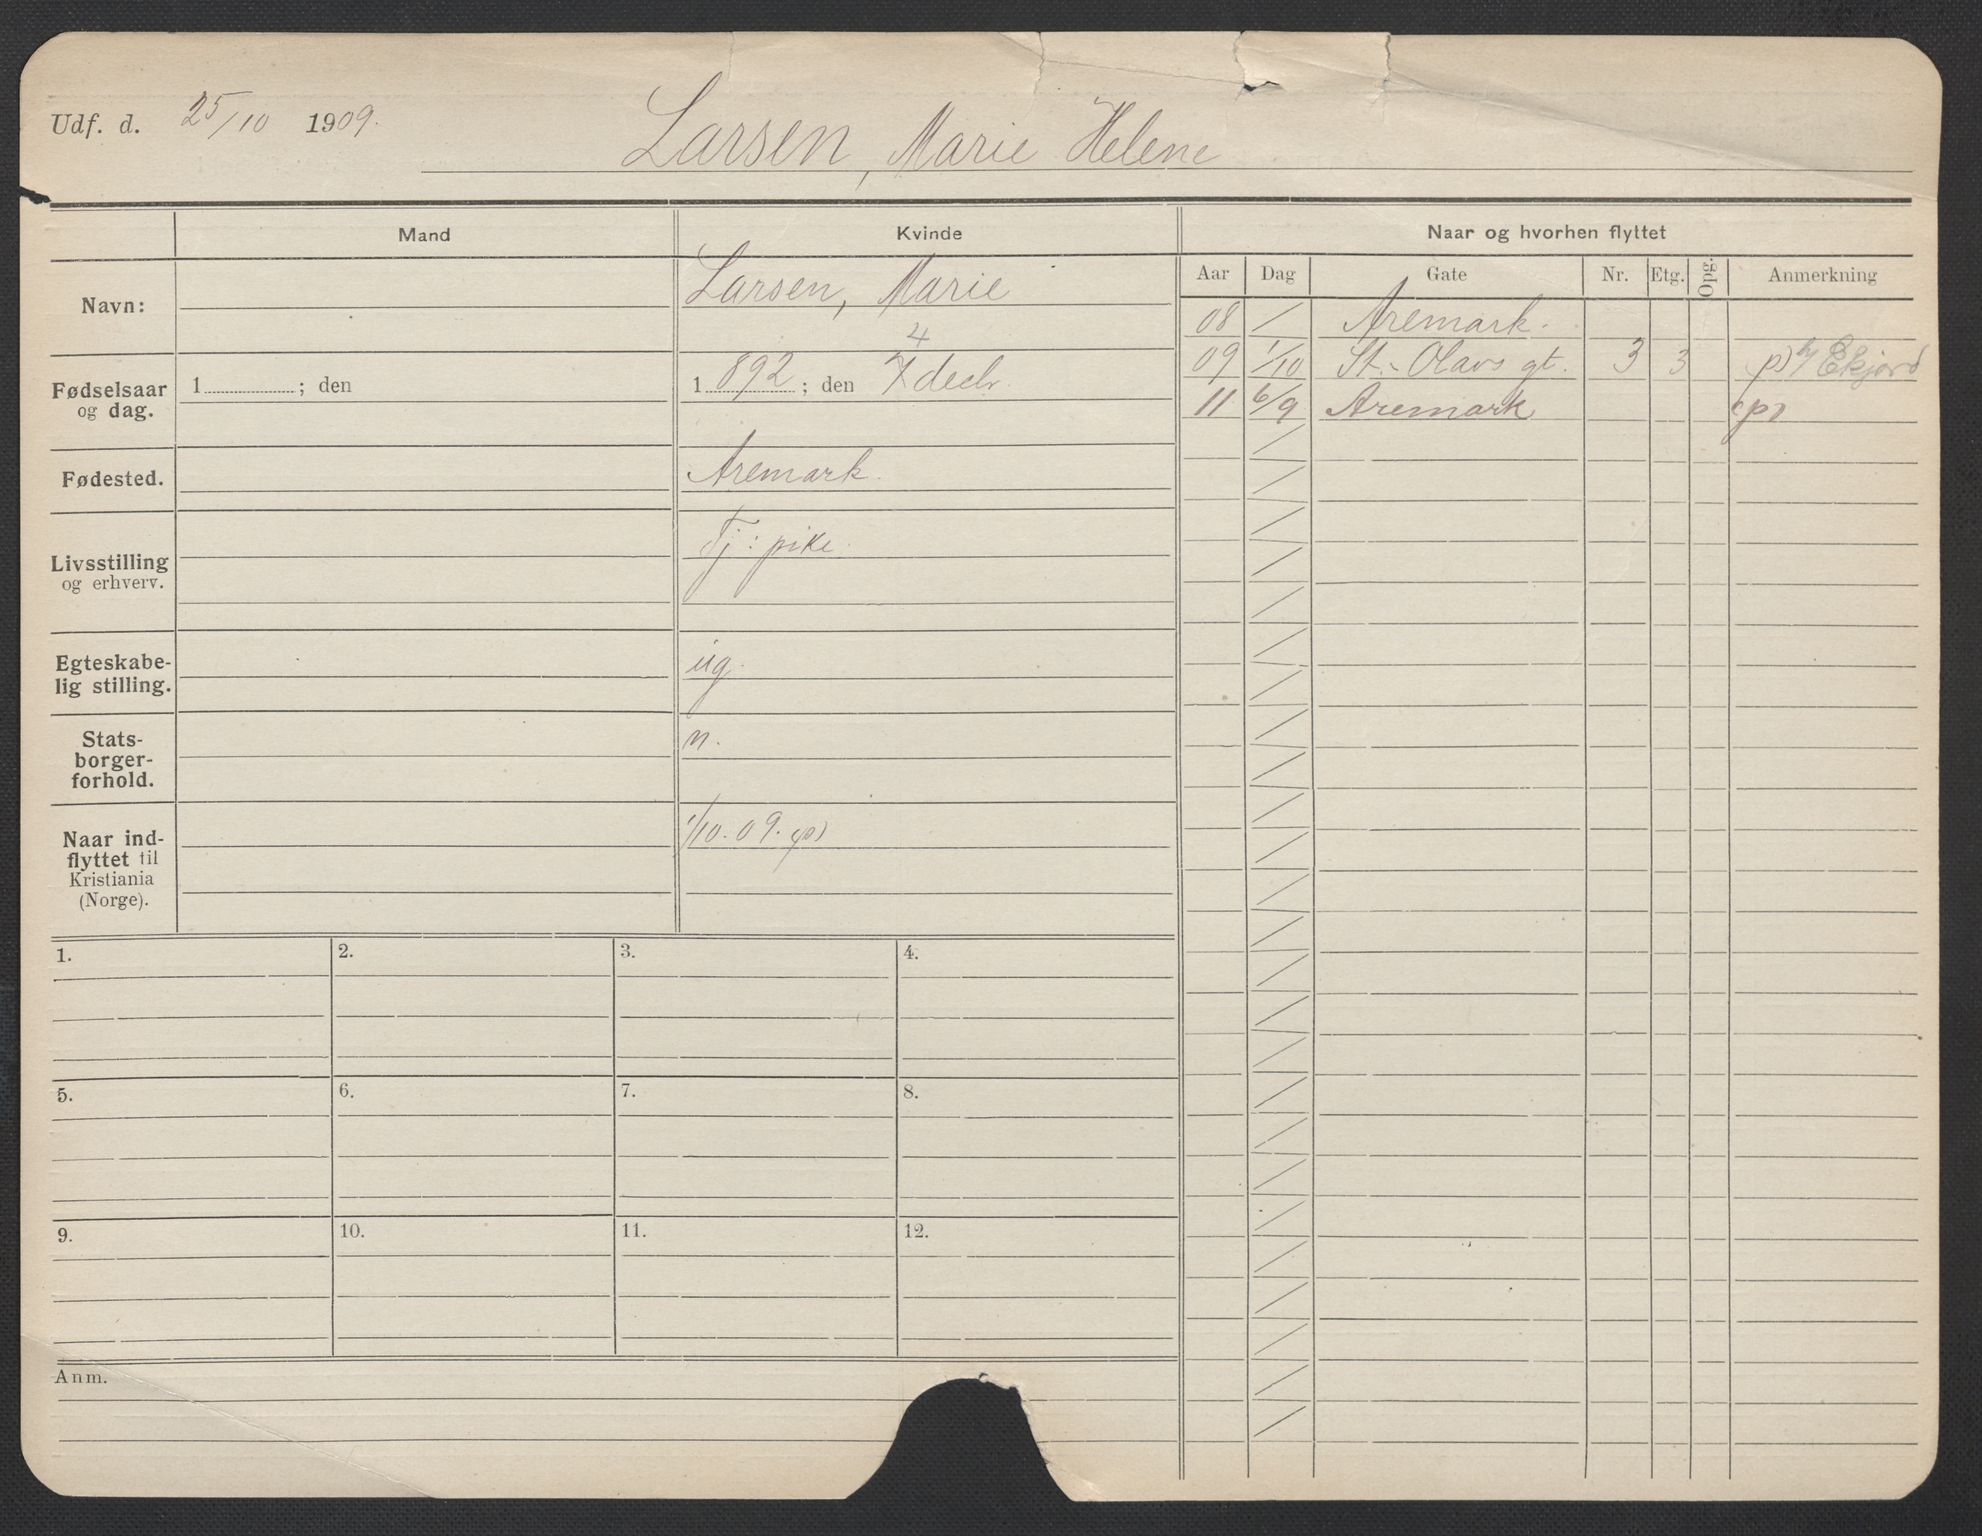 Udf. d. 25/10 1909.
Larsen, Marie Helene
Mand
Kvinde
Naar og hvorhen flyttet
Aar Dag Gate Nr. Etg. Opg. Anmerkning
Navn:
Larsen, Marie
08 / Aremark.
09 1/10 St. Olavs gt. 3 3 p) h/ Ekjord
11 6/9 Aremark (p)
Fødselsaar
og dag.
1 ; den
4
1 892 ; den 7 decbr.
Fødested.
Aremark.
Livsstilling
og erhverv.
Tj: pike
Egteskabe-
lig stilling.
ug.
Stats-
borger-
forhold.
n.
Naar ind-
flyttet til
Kristiania
(Norge).
1/10. 09. (p)
1. 2. 3. 4.
5. 6. 7. 8.
9. 10. 11. 12.
Anm.